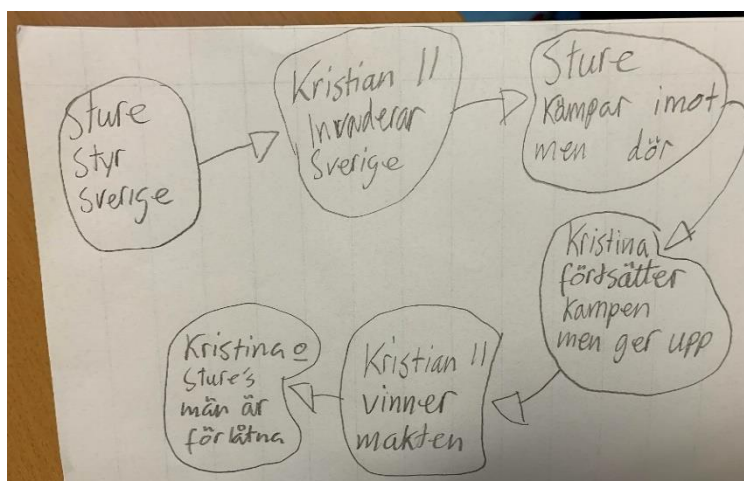 Sture
Styr
Sverige
Kristian II
Invaderar
Sverige
Sture
kämpar imot
men dör
Kristina
fördsätter
kampen
men ger upp
Kristian II
vinner
makten
Kristina o
Sture's
män är
förlåtna